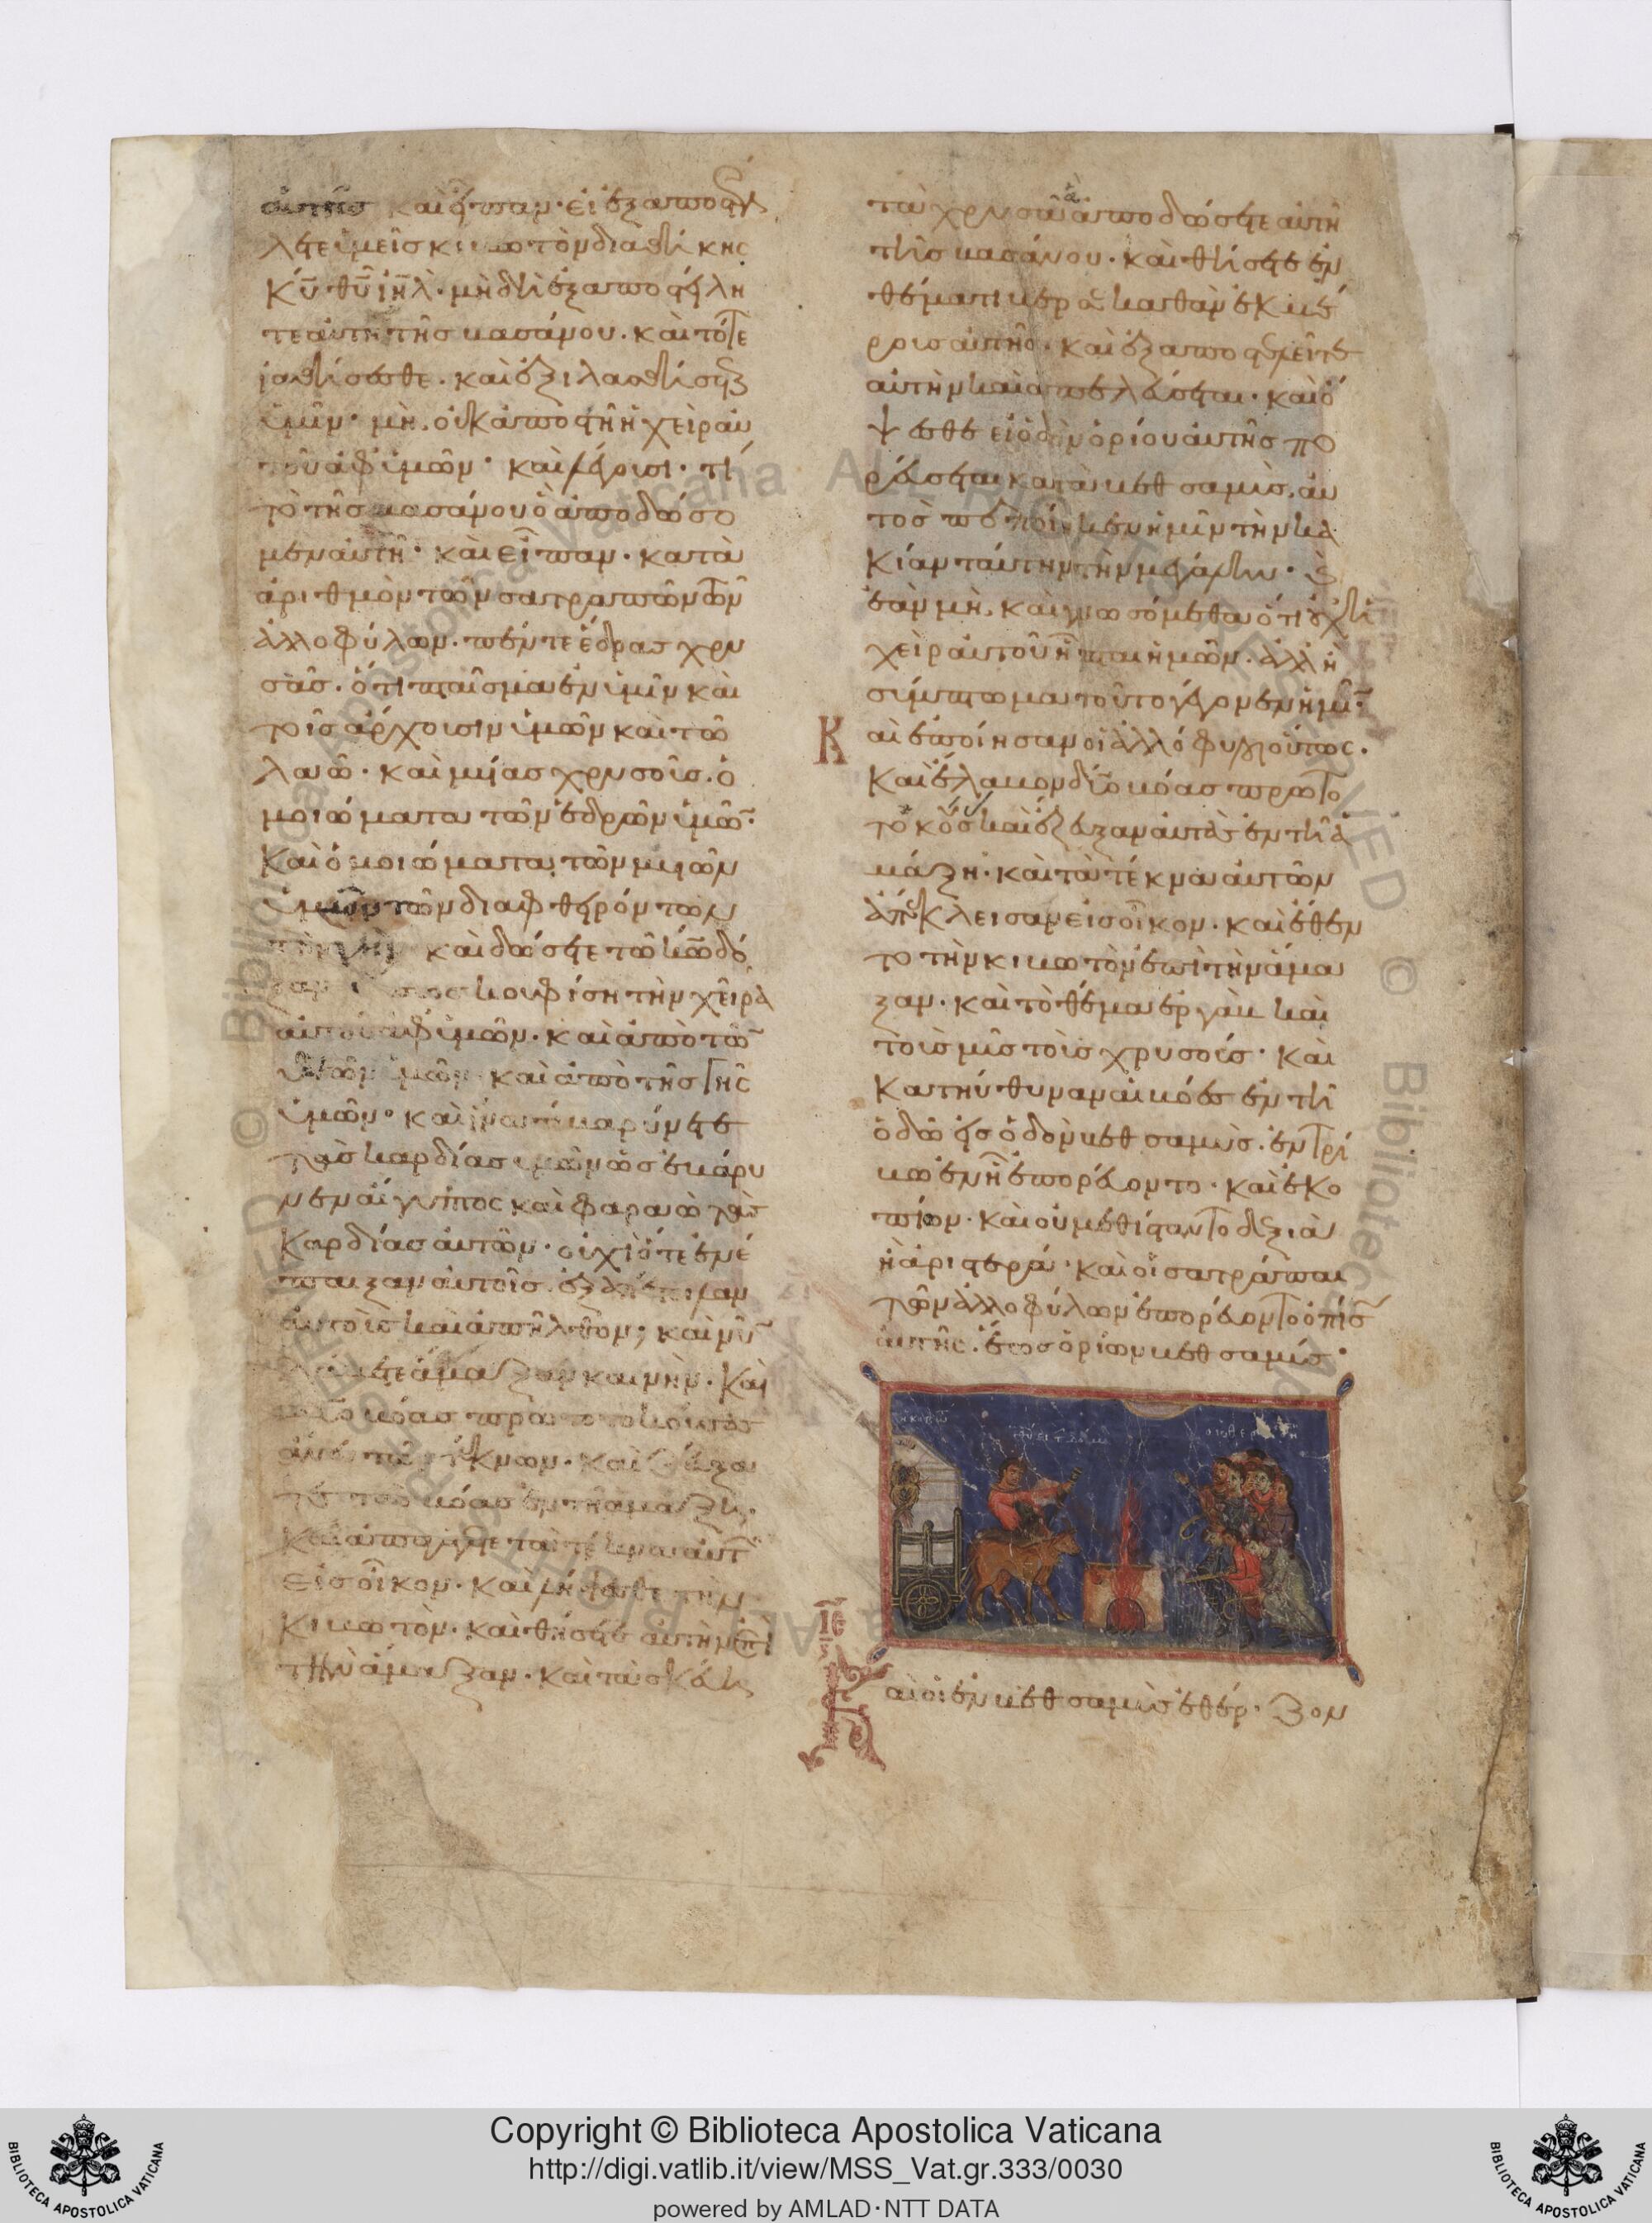 αὐτῆς καὶ εἶπαν· εἰ ἐξαποστέλ
λετε ὑμεῖς κιβωτὸν διαθήκης
κ̅υ̅ θ̅υ̅ ι̅η̅λ̅· μὴ δὴ ἐξαποστείλη
τε αὐτὴν τῆς βασάνου. καὶ τότε
ἰαθήσεσθε. καὶ ἐξιλασθήσεται
ὑμῖν· μὴ οὐκ ἀποστῆ ἡ χεὶρ αὐ
τοῦ ἀφ ὑμῶν· καὶ λέγουσι· τί
τὸ τῆς βασάνου ὃ ἀποδώσο
μεν αὐτῆ· καὶ εἶπαν. κατὰ
ἀριθμὸν τῶν σατραπῶν τῶν
ἀλλοφύλων. πέντε ἕδρας χρυ
σᾶς. ὅτι πταῖσμα ἐν ὑμῖν καὶ
τοῖς ἄρχουσιν ὑμῶν καὶ τῶ
λαῶ· καὶ μύας χρυσοῦς. ὁ
μοιώματα τῶν ἑδρῶν ὑμῶν·
καὶ ὁμοιώματα τῶν μυῶν
ὑμῶν τῶν διαφθειρόντων
τὴν γῆν καὶ δώσετε τῶ κ̅ω̅ δό
ξαν ὅπως κουφίση τὴν χεῖρα
αὐτοῦ ἀφ ὑμῶν. καὶ ἀπὸ τῶν
θεῶν ὑμῶν καὶ ἀπὸ τῆς γῆς
ὑμῶν· καὶ ἱνατί βαρύνετε
τὰς καρδίας ὑμῶν ὡς ἐβάρυ
νεν αἴγυπτος καὶ φαραὼ τὰς
καρδίας αὐτῶν. οὐχὶ ὅτε ἐνέ
παιξαν αὐτοῖς. ἐξαπέστειλαν
αὐτοὺς καὶ ἀπῆλθον; καὶ νῦν
λάβετε ἅμαξαν καινὴν. καὶ
δύο βόας πρωτοτοκούσας
ἄνευ τῶν τέκνων. καὶ ζεύξα
τε τὰς βόας ἐν τῆ ἁμάξη.
καὶ ἀπαγάγετε τὰ τέκνα αὐτῶν
εἰς οἶκον. καὶ λήψεσθε τὴν
κιβωτὸν. καὶ θήσετε αὐτὴν ἐπὶ
τὴν ἅμαξαν. καὶ τὰ σκεύη
τὰ χρυσᾶ ἃ ἀποδώσετε αὐτῆ
τῆς βασάνου. καὶ θήσετε ἐν
θέματι βερσεχθὰν ἐκ μέ
ρους αὐτῆς. καὶ ἐξαποστελεῖτε
αὐτὴν καὶ ἀπελεύσεται. καὶ ὄ
ψεσθε εἰ ὁδὸν ὁρίου αὐτῆς πο
ρεύσεται κατὰ βεθσαμὺς. αὐ
τὸς πεποίηκεν ἡμῖν τὴν κα
κίαν ταύτην τὴν μεγάλην· καὶ
ἐὰν μὴ. καὶ γνωσόμεθα ὅτι οὐχ ἡ
χεὶρ αὐτοῦ ἧπται ἡμῶν. ἀλλ ἢ
σύμπτωμα τοῦτο γέγονεν ἡμῖν·
Καὶ ἐποίησαν οἱ ἀλλόφυλοι οὕτως.
καὶ ἔλαβον δύο βόας πρωτο
τοκούσας καὶ ἔζευξαν αὐτὰς ἐν τῆ ἁ
μάξη. καὶ τὰ τέκνα αὐτῶν
ἀπέκλεισαν εἰς οἶκον. καὶ ἔθεν
το τὴν κιβωτὸν ἐπὶ τὴν ἅμα
ξαν. καὶ τὸ θέμα ἐργὰβ καὶ
τοὺς μῦς τοὺς χρυσοῦς· καὶ
κατηύθυναν αἱ βόες ἐν τῆ
ὁδῶ εἰς ὁδὸν βεθσαμὺς. ἐν τρί
βω ἑνὶ ἐπορεύοντο. καὶ ἐκο
πίων. καὶ οὐ μεθίσταντο δεξιὰ
ἢ ἀριστερά. καὶ οἱ σατράπαι
τῶν ἀλλοφύλων ἐπορεύοντο ὀπίσω
αὐτῆς. ἕως ὁρίων βεθσαμύς·
ι̅ε̅
Καὶ οἱ ἐν βεθσαμὺς ἐθέριζον
Copyright © Biblioteca Apostolica Vaticana
http://digi.vatlib.it/view/MSS_Vat.gr.333/0030
powered by AMLAD · NTT DATA
BIBLIOTECA APOSTOLICA VATICANA
BIBLIOTECA APOSTOLICA VATICANA